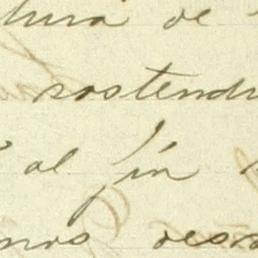 tura de
sostendr
al fin
nos des